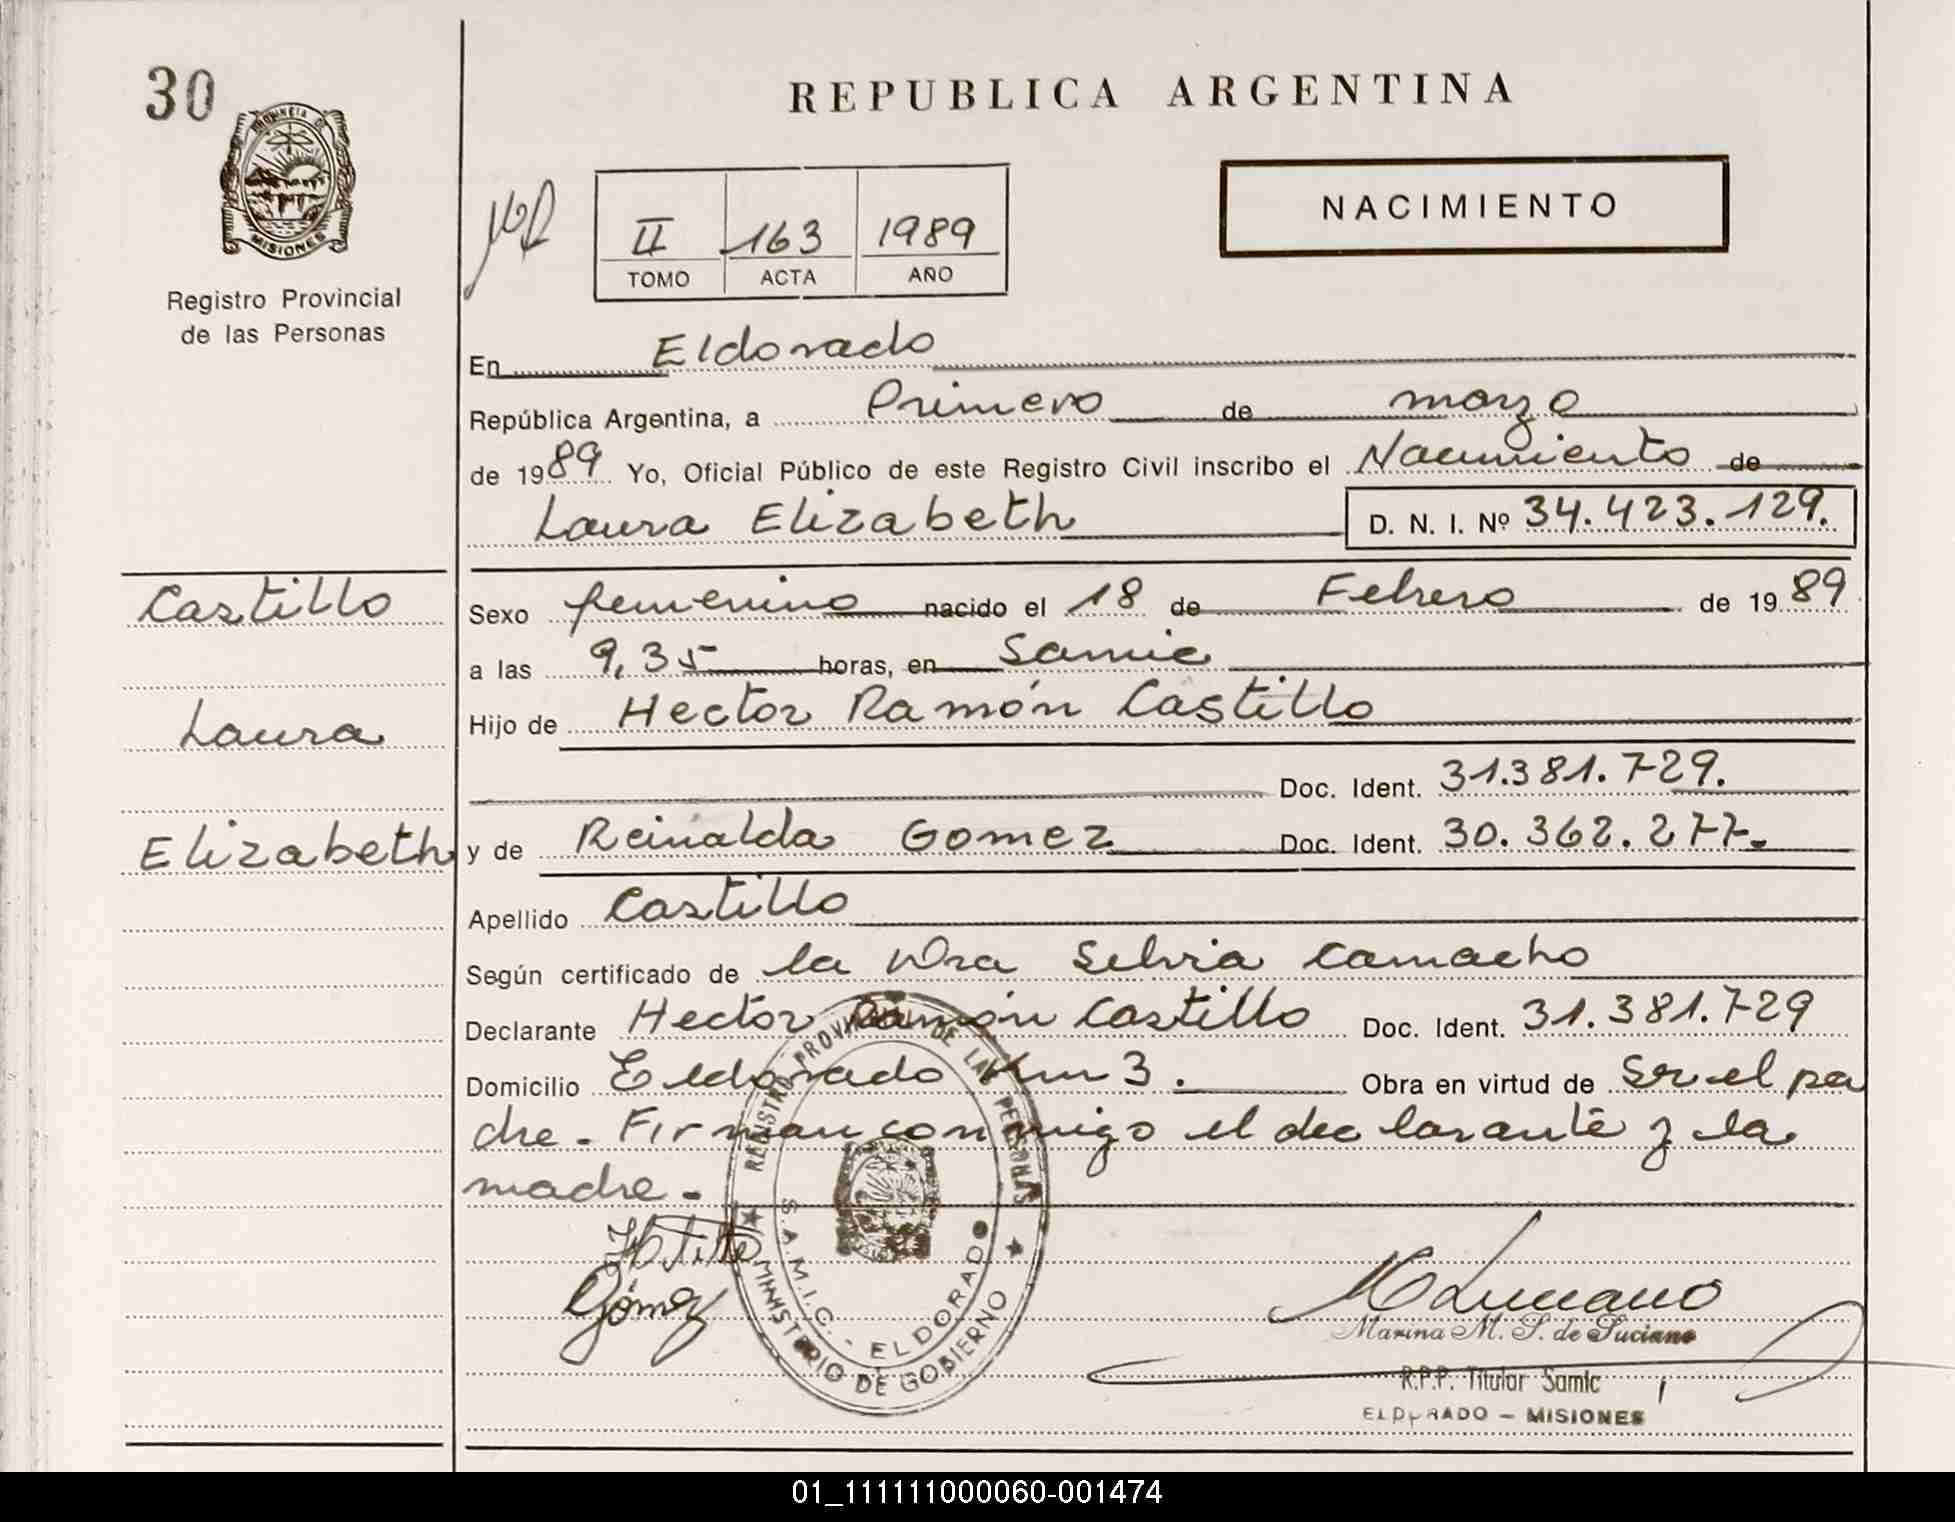 30
REPUBLICA ARGENTINA
PROVINCIA DE
MISIONES
Registro Provincial
de las Personas
NACIMIENTO
II 163 1989
TOMO ACTA AÑO
En Eldorado
República Argentina, a Primero de marzo
de 1989 Yo, Oficial Público de este Registro Civil inscribo el Nacimiento de
Laura Elizabeth D. N. I. Nº 34.423.129.
Castillo
Laura
Elizabeth
Sexo femenino nacido el 18 de Febrero de 1989
a las 9,35 horas, en Samic
Hijo de Hector Ramón Castillo
Doc. Ident. 31.381.729.
y de Reinalda Gomez Doc. Ident. 30.362.277.
Apellido Castillo
Según certificado de la Dra Silvia Camacho
Declarante Hector Ramón Castillo Doc. Ident. 31.381.729
Domicilio Eldorado Km 3. Obra en virtud de Ser el pa
dre. Firman conmigo el declarante y la
madre.
REGISTRO PROVINCIAL DE LAS PERSONAS
S.A.M.I.C. - ELDORADO
MINISTERIO DE GOBIERNO
Gómez
M Luciano
Marina M. S. de Luciano
R.P.P. Titular Samic
ELDORADO - MISIONES
01_111111000060-001474